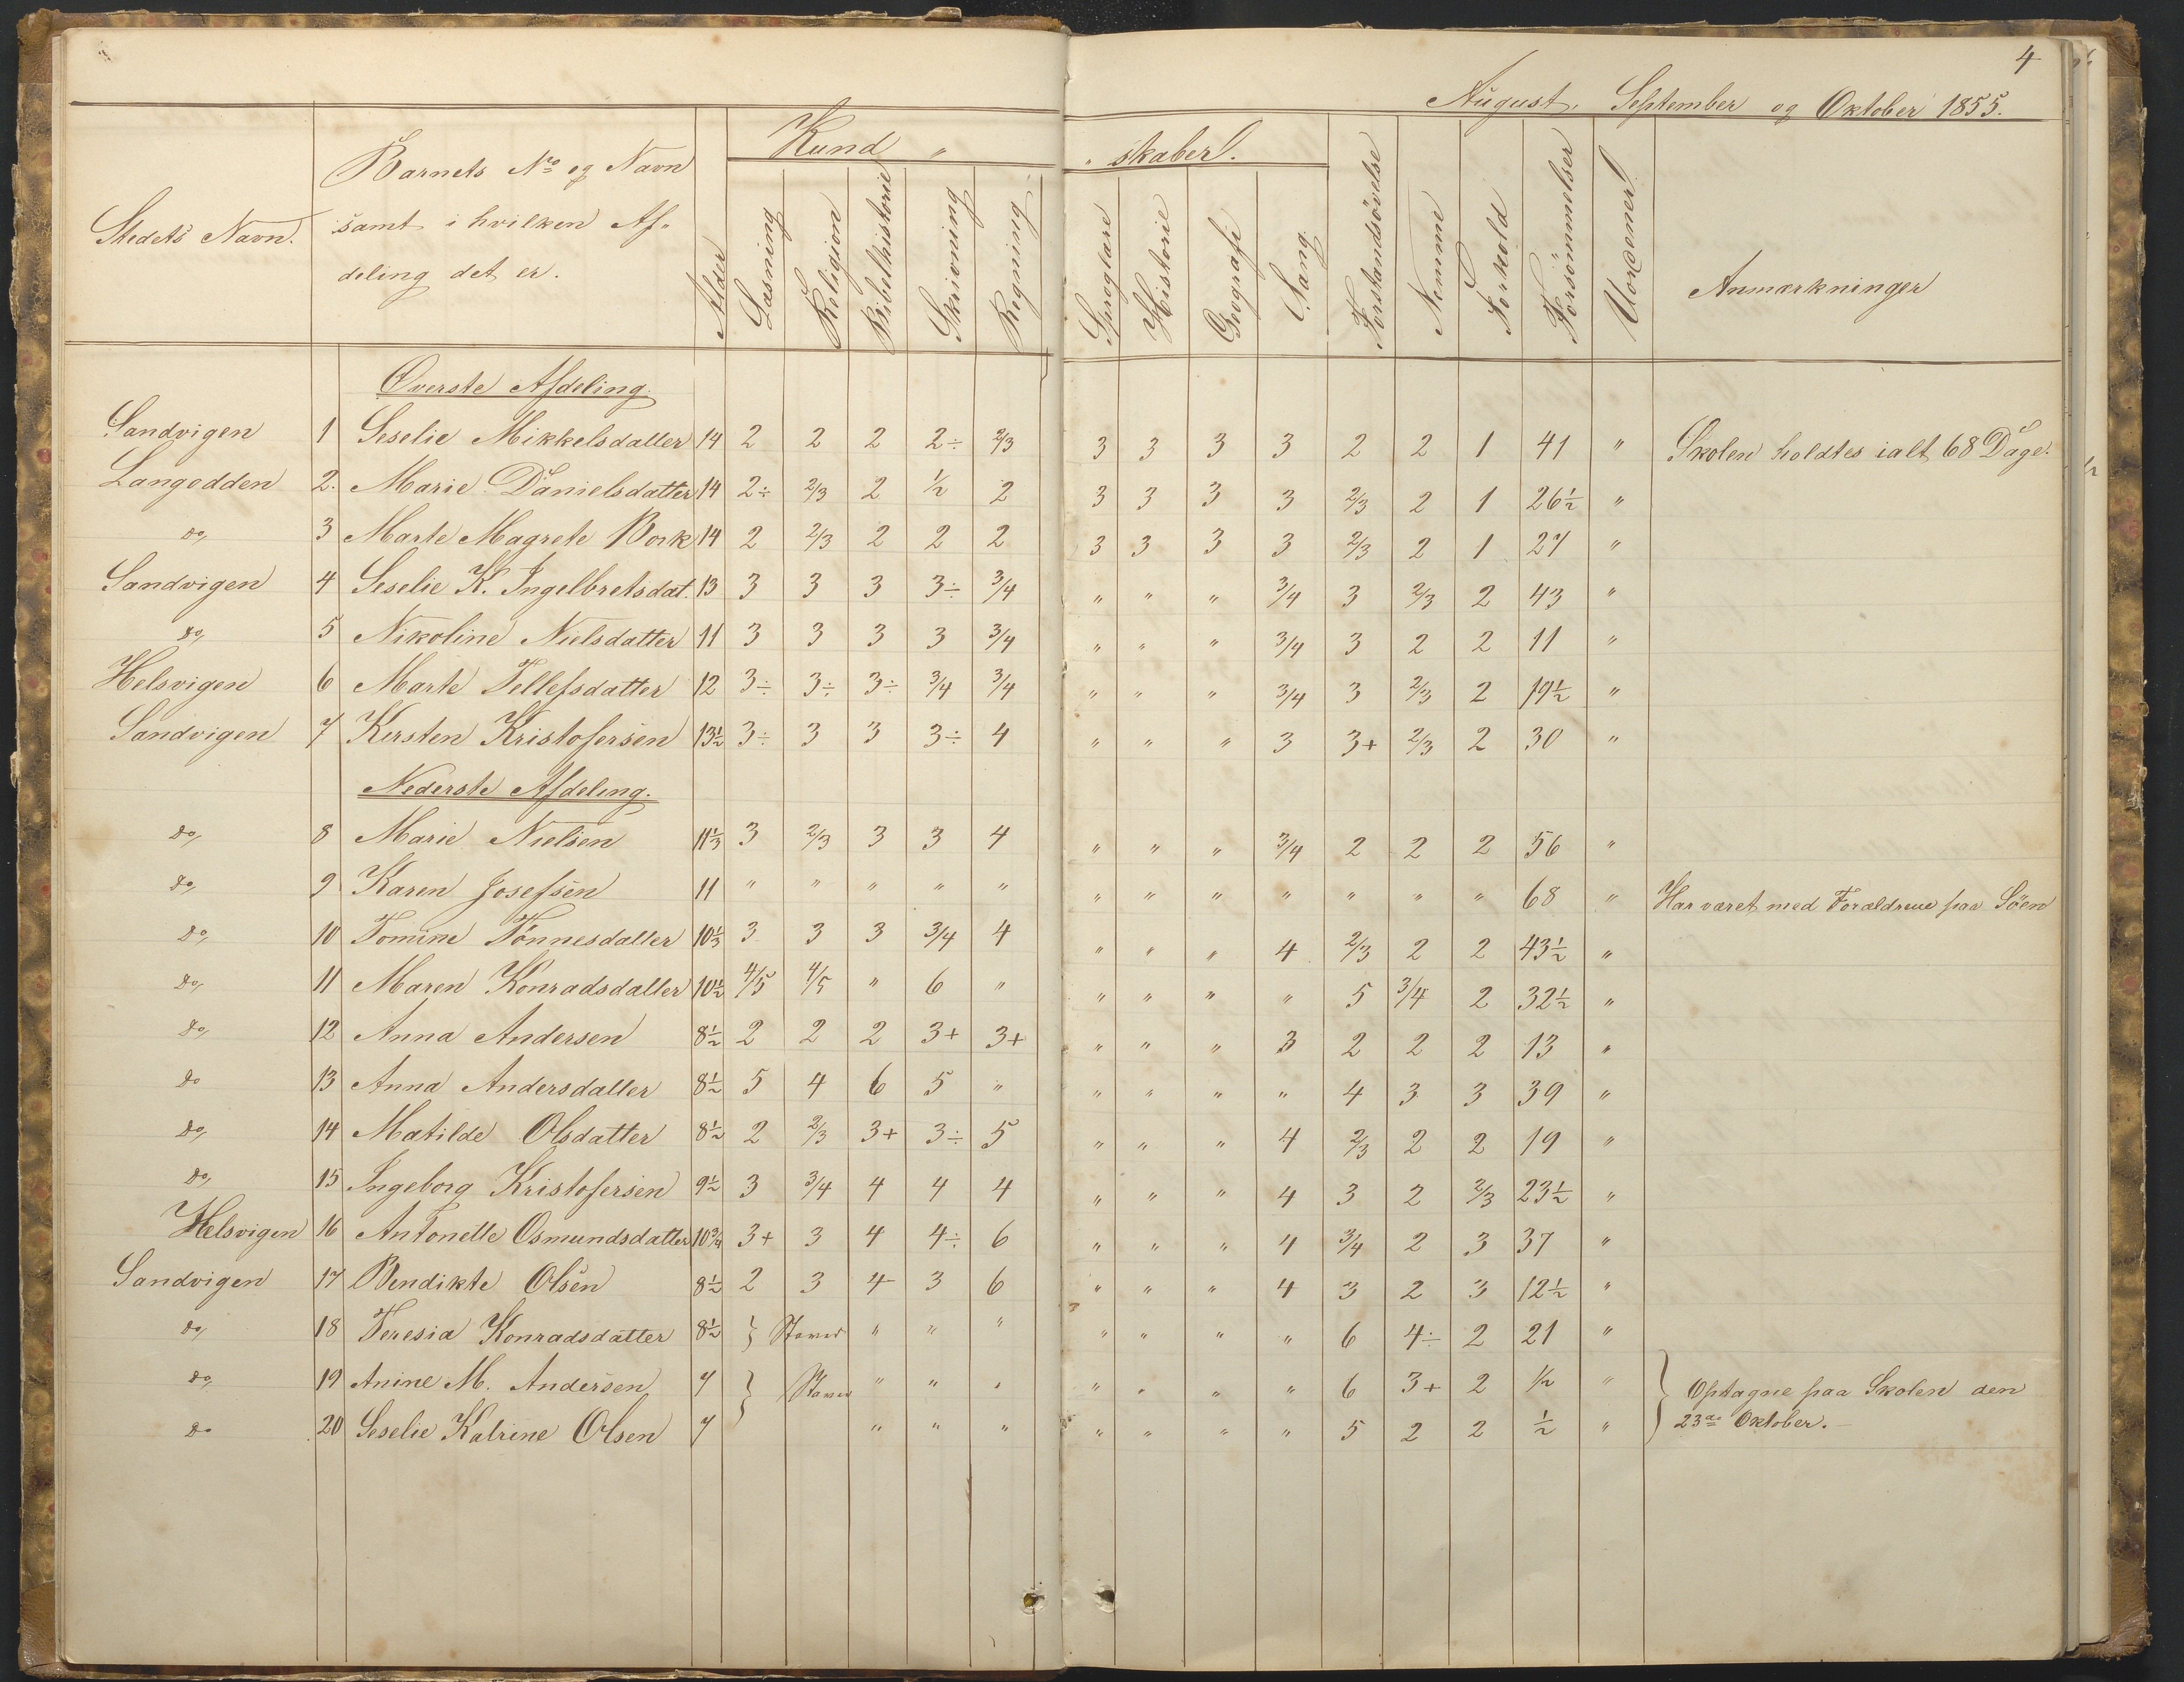 4
August, September og Oktober 1855.
Stedets Navn.
Barnets No og Navn
samt i hvilken Af-
deling det er.
Alder
Kund „ „ skaber.
Læsning Religion Bibelhistorie Skrivning Regning Sproglære Historie Geografi Sang. Forstandsøvelse Nemme Forhold Forsømmelser Uordener Anmærkninger
Øverste Afdeling.
Sandvigen 1 Seselie Mikkelsdatter 14 2 2 2 2÷ 2/3 3 3 3 3 2 2 1 41 „ Skolen holdtes ialt 68 Dage.
Langodden 2. Marie Danielsdatter 14 2÷ 2/3 2 1/2 2 3 3 3 3 2/3 2 1 26½ „
do, 3 Marte Magrete Bork 14 2 2/3 2 2 2 3 3 3 3 2/3 2 1 27 „
Sandvigen 4 Seselie K. Ingelbretsdat. 13 3 3 3 3÷ 3/4 „ „ „ 3/4 3 2/3 2 43 „
do, 5 Nikoline Nielsdatter 11 3 3 3 3 3/4 „ „ „ 3/4 3 2 2 11 „
Helsvigen 6 Marte Tellefsdatter 12 3÷ 3÷ 3÷ 3/4 3/4 „ „ „ 3/4 3 2/3 2 19½ „
Sandvigen 7 Kersten Kristofersen 13½ 3÷ 3 3 3÷ 4 „ „ „ 3 3+ 2/3 2 30 „
Nederste Afdeling.
do, 8 Marie Nielsen 11⅓ 3 2/3 3 3 4 „ „ „ 3/4 2 2 2 56 „
do, 9 Karen Josefsen 11 „ „ „ „ „ „ „ „ „ „ „ „ 68 „ Har været med Forældrene paa Söen
do, 10 Tomine Tönnesdatter 10⅓ 3 3 3 3/4 4 „ „ „ 4 2/3 2 2 43½ „
do, 11 Maren Konradsdatter 10½ 4/5 4/5 „ 6 „ „ „ „ „ 5 3/4 2 32½ „
do, 12 Anna Andersen 8½ 2 2 2 3+ 3+ „ „ „ 3 2 2 2 13 „
do 13 Anna Andersdatter 8½ 5 4 6 5 „ „ „ „ „ 4 3 3 39 „
do, 14 Matilde Olsdatter 8½ 2 2/3 3+ 3÷ 5 „ „ „ 4 2/3 2 2 19 „
do, 15 Ingeborg Kristofersen 9½ 3 3/4 4 4 4 „ „ „ 4 3 2 2/3 23½ „
Helsvigen 16 Antonette Osmundsdatter 10¾ 3+ 3 4 4÷ 6 „ „ „ 4 3/4 2 3 37 „
Sandvigen 17 Bendikte Olsen 8½ 2 3 4 3 6 „ „ „ 4 3 2 3 12½ „
do, 18 Teresia Konradsdatter 8½ } Staver „ „ „ „ „ „ „ 6 4÷ 2 21 „
do, 19 Anine M. Andersen 7 } Staver „ „ „ „ „ „ „ 6 3+ 2 1/2 „ } Optagne paa Skolen den
do 20 Seselie Katrine Olsen 7 „ „ „ „ „ „ „ 5 2 2 ½ „ 23de Oktober.